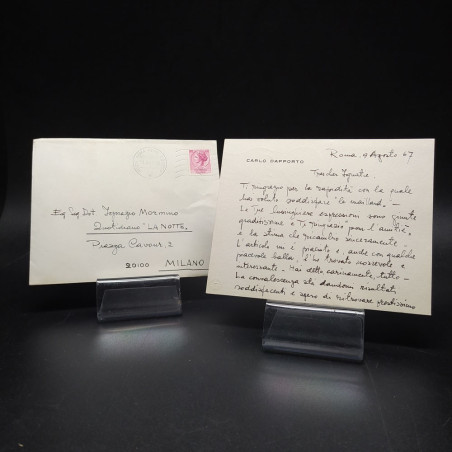 Eg. Sig. Dott. Ignazio Mormino
Quotidiano "LA NOTTE"
Piazza Cavour, 2
20100
MILANO
CARLO DAPPORTO
Roma, 9 Agosto 67
Ti ringrazio per la rapidità con la quale
hai voluto soddisfare la
Le Tue lusinghiere espressioni sono giunte
graditissime e Ti ringrazio per l'amicizia
e la stima che ricambio sinceramente.
L'articolo mi è piaciuto e, anche con qualche
piacevole balla, l'ho trovato scorrevole e
interessante. - Hai detto carinamente tutto -
La convalescenza sta dandomi risultati
soddisfacenti e spero di ritrovare prestissimo